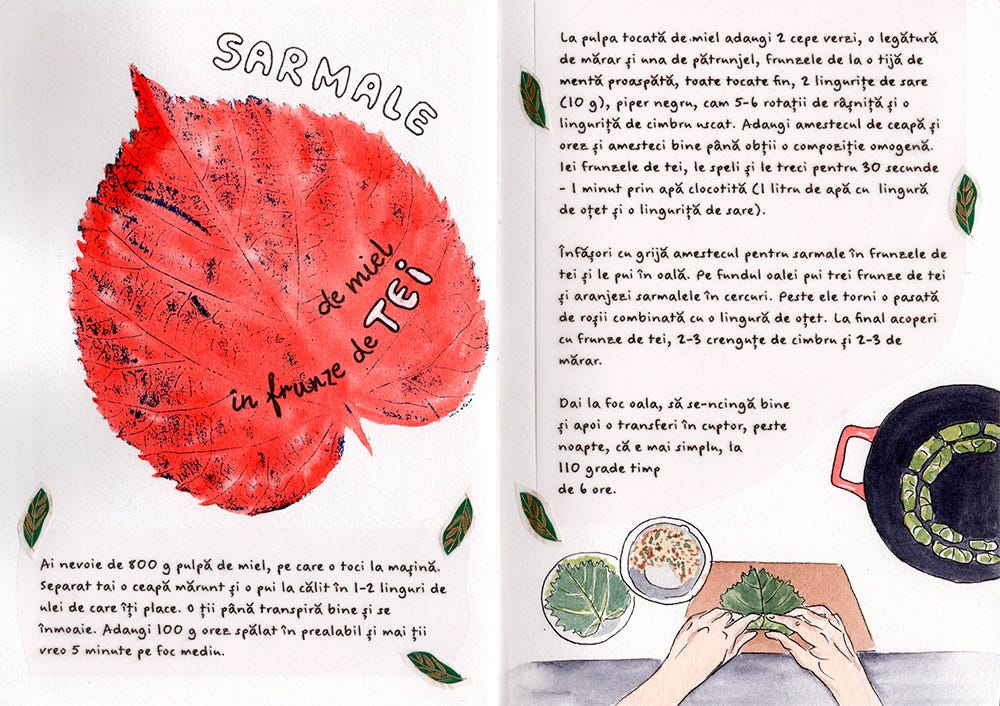 SARMALE
de miel
în frunze de TEi
Ai nevoie de 800 g pulpă de miel, pe care o toci la mașină.
Separat tai o ceapă mărunt și o pui la călit în 1-2 linguri de
ulei de care îți place. O ții până transpiră bine și se
înmoaie. Adangi 100 g orez spălat în prealabil și mai ții
vreo 5 minute pe foc mediu.
La pulpa tocată de miel adangi 2 cepe verzi, o legătură
de mărar și una de pătrunjel, frunzele de la o tijă de
mentă proaspătă, toate tocate fin, 2 lingurițe de sare
(10 g), piper negru, cam 5-6 rotații de râșniță și o
linguriță de cimbru uscat. Adangi amestecul de ceapă și
orez și amesteci bine până obții o compoziție omogenă.
Iei frunzele de tei, le speli și le treci pentru 30 secunde
- 1 minut prin apă clocotită (1 litru de apă cu lingură
de oțet și o linguriță de sare).
Înfășori cu grijă amestecul pentru sarmale în frunzele de
tei și le pui în oală. Pe fundul oalei pui trei frunze de tei
și aranjezi sarmalele în cercuri. Peste ele torni o pasată
de roșii combinată cu o lingură de oțet. La final acoperi
cu frunze de tei, 2-3 crenguțe de cimbru și 2-3 de
mărar.
Dai la foc oala, să se-ncingă bine
și apoi o transferi în cuptor, peste
noapte, că e mai simplu, la
110 grade timp
de 6 ore.